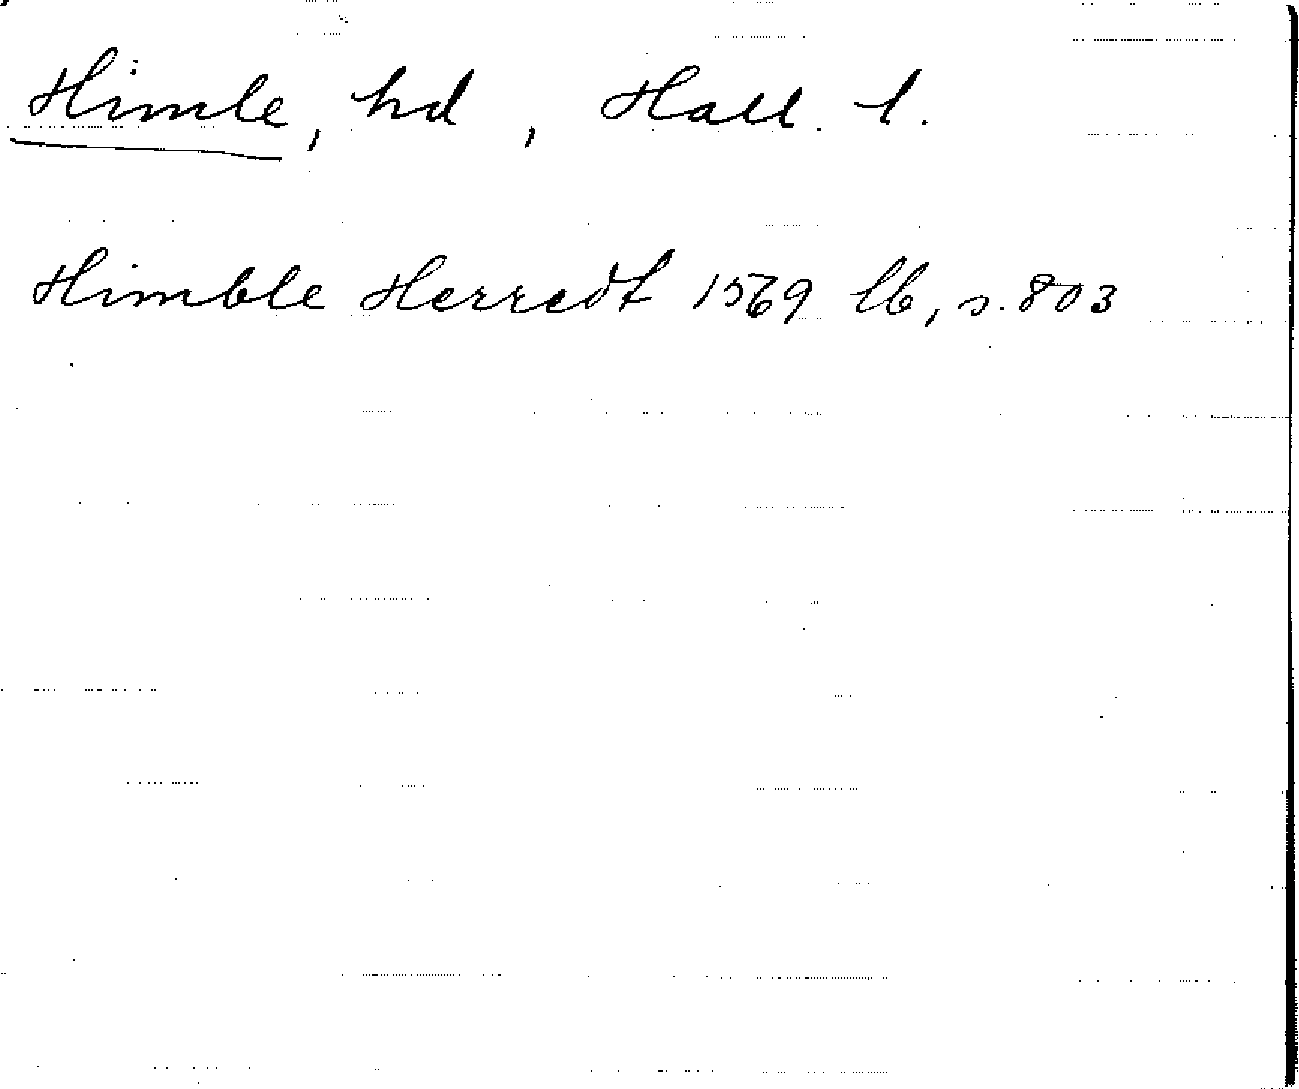 Himle, hd, Hall. l.
Himble Herredt 1569 lb, s. 803